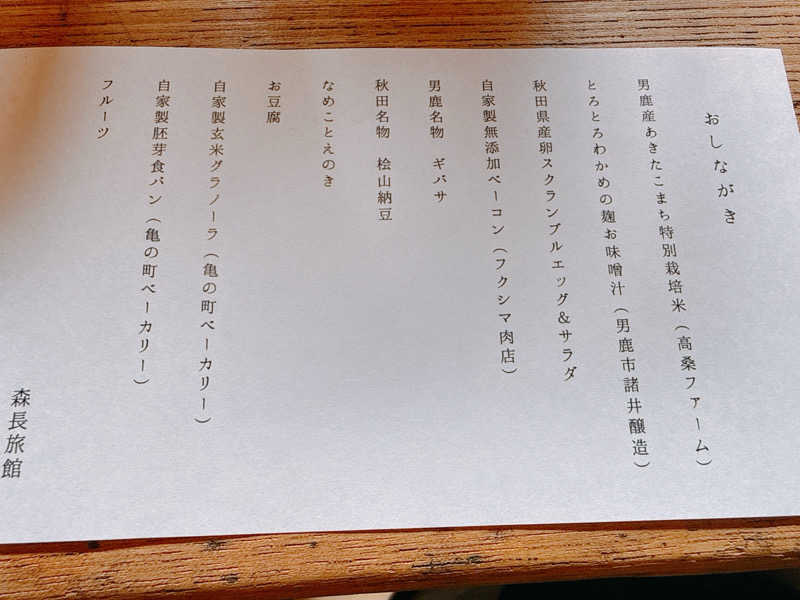 おしながき
男鹿産あきたこまち特別栽培米（高桑ファーム）
とろとろわかめの麹お味噌汁（男鹿市諸井醸造）
秋田県産卵スクランブルエッグ&サラダ
自家製無添加ベーコン（フクシマ肉店）
男鹿名物　ギバサ
秋田名物　桧山納豆
なめことえのき
お豆腐
自家製玄米グラノーラ（亀の町ベーカリー）
自家製胚芽食パン（亀の町ベーカリー）
フルーツ
森長旅館